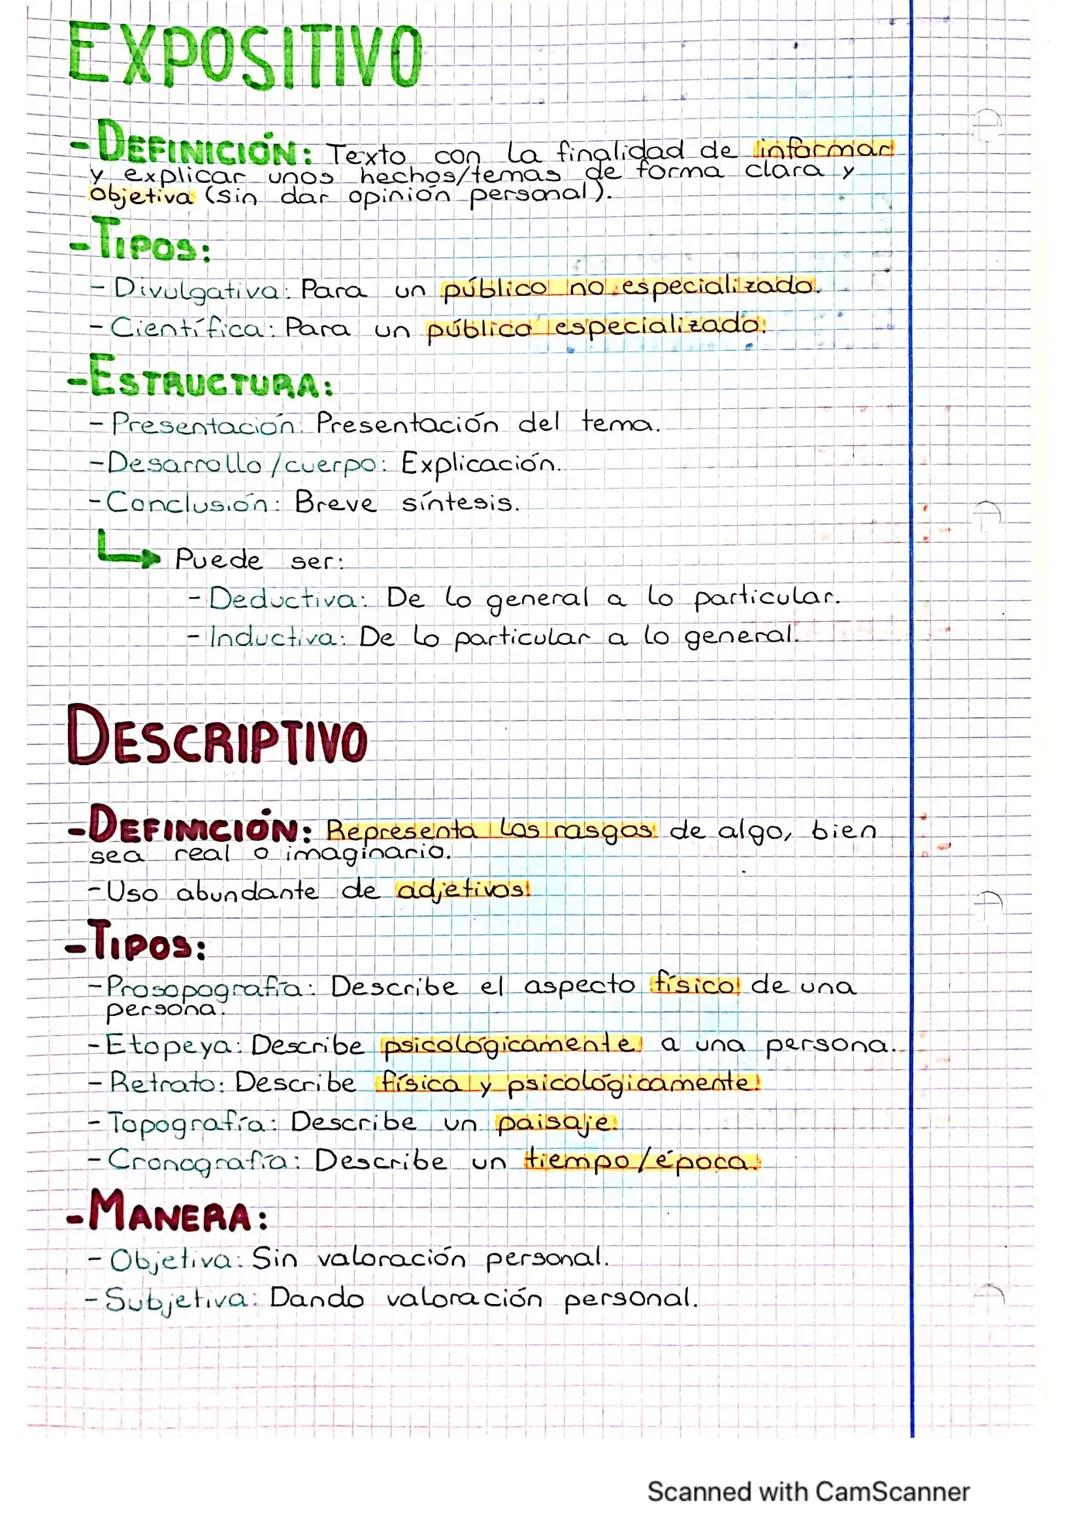 EXPOSITIVO
-DEFINICIÓN: Texto con la finalidad de informar
y explicar unos hechos/temas de forma clara y
objetiva (sin dar opinión personal).
-TIPOS:
-Divulgativa: Para un público no especializado.
-Científica: Para un público especializado.
-ESTRUCTURA:
-Presentación: Presentación del tema.
-Desarrollo/cuerpo: Explicación.
-Conclusión: Breve síntesis.
Puede ser:
-Deductiva: De lo general a lo particular.
-Inductiva: De lo particular a lo general.
DESCRIPTIVO
-DEFINICIÓN: Representa los rasgos de algo, bien
sea real o imaginario.
-Uso abundante de adjetivos.
-TIPOS:
-Prosopografía: Describe el aspecto físico de una
persona.
-Etopeya: Describe psicológicamente a una persona.
-Retrato: Describe física y psicológicamente.
-Topografía: Describe un paisaje.
-Cronografía: Describe un tiempo/época.
-MANERA:
-Objetiva: Sin valoración personal.
-Subjetiva: Dando valoración personal.
Scanned with CamScanner